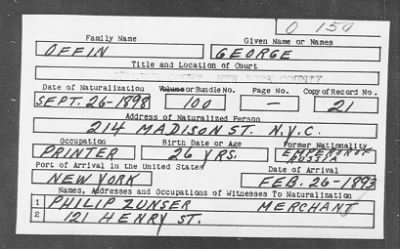 O 150
Family Name Given Name or Names
OFFIN GEORGE
Title and Location of Court
NEW YORK COUNTY
Date of Naturalization Volume or Bundle No. Page No. Copy of Record No.
SEPT. 26-1898 100 — 21
Address of Naturalized Person
214 MADISON ST. N.Y.C.
Occupation Birth Date or Age Former Nationality
PRINTER 26 YRS. EMPEROR OF RUSSIA
Port of Arrival in the United States Date of Arrival
NEW YORK FEB. 26-1893
Names, Addresses and Occupations of Witnesses To Naturalization
1 PHILIP ZUNSER MERCHANT
2 121 HENRY ST.